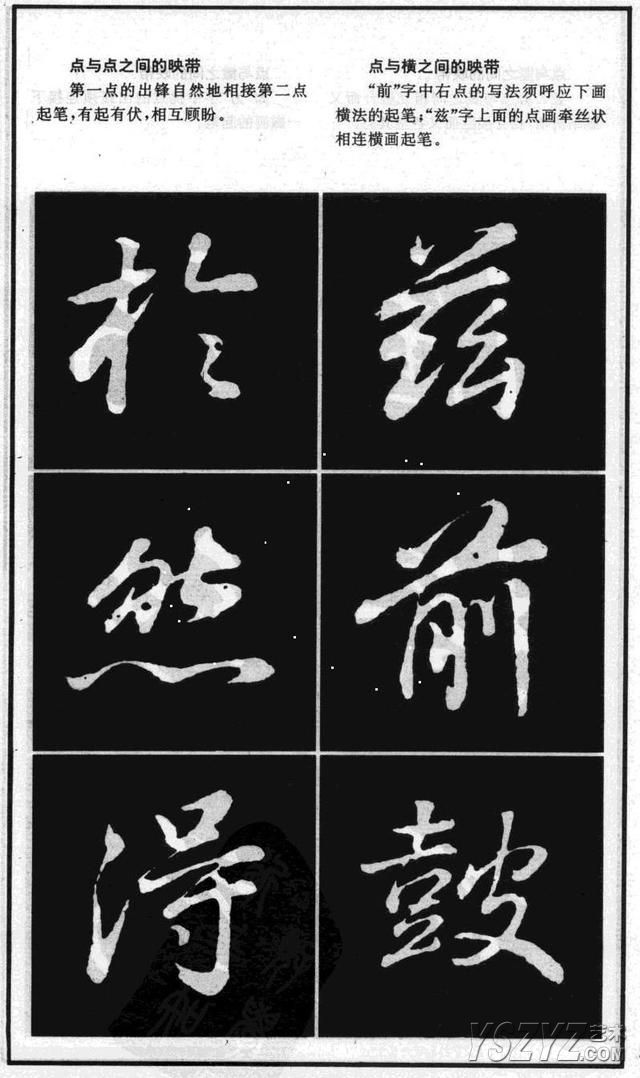 点与点之间的映带
第一点的出锋自然地相接第二点
起笔,有起有伏,相互顾盼。
点与横之间的映带
“前”字中右点的写法须呼应下画
横法的起笔;“兹”字上面的点画牵丝状
相连横画起笔。
於
兹
然
前
得
鼓
YSZYZ艺术
.COM